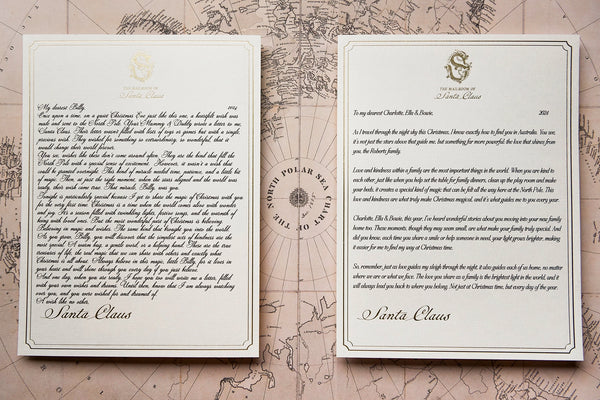 THE MAILROOM OF
Santa Claus
My dearest Billy, 2024
Once upon a time, on a quiet Christmas Eve just like this one, a heartfelt wish was
made and sent to the North Pole. Your Mummy & Daddy wrote a letter to me,
Santa Claus. Their letter wasn't filled with lists of toys or games but with a single,
sincere wish. They wished for something so extraordinary, so wonderful, that it
would change their world forever.
You see, wishes like theirs don't come around often. They are the kind that fill the
North Pole with a special sense of excitement. However, it wasn't a wish that
could be granted overnight. This kind of miracle needed time, patience, and a little bit
of magic. Then, at just the right moment, when the stars aligned and the world was
ready, their wish came true. That miracle, Billy, was you.
Tonight is particularly special because I get to share the magic of Christmas with you
for the very first time. Christmas is a time when the world comes alive with wonder
and joy. It's a season filled with twinkling lights, festive songs, and the warmth of
being with loved ones. But the most wonderful part of Christmas is believing.
Believing in magic and wishes. The same kind that brought you into the world.
As you grow, Billy, you will discover that the simplest acts of kindness are the
most special. A warm hug, a gentle word, or a helping hand. These are the true
treasures of life, the real magic that we can share with others and exactly what
Christmas is all about. Always believe in this magic, little Billy, for it lives in
your heart and will shine through you every day if you just believe.
And one day, when you are ready, I hope you too will write me a letter, filled
with your own wishes and dreams. Until then, know that I am always watching
over you, and you were wished for and dreamed of.
A wish like no other.
Santa Claus
NORTH POLAR SEA
CHART OF THE
THE MAILROOM OF
Santa Claus
To my dearest Charlotte, Ella & Bowie, 2024
As I travel through the night sky this Christmas, I know exactly how to find you in Australia. You see,
it's not just the stars above that guide me, but something far more powerful: the love that shines from
you, the Roberts family.
Love and kindness within a family are the most important things in the world. When you are kind to
each other, just like when you help set the table for family dinners, clean up the play room and make
your beds, it creates a special kind of magic that can be felt all the way here at the North Pole. This
love and kindness are what truly make Christmas magical, and it's what guides me to you every year.
Charlotte, Ella & Bowie, this year, I've heard wonderful stories about you moving into your new family
home too. These moments, though they may seem small, are what make your family truly special. And
did you know, each time you share a smile or help someone in need, your light grows brighter, making
it easier for me to find my way at Christmas time.
So, remember, just as love guides my sleigh through the night, it also guides each of us home, no matter
where we are or what we face. The love you share as a family is the brightest light in the world, and it
will always lead you back to where you belong. Not just at Christmas time, but every day of the year.
Santa Claus